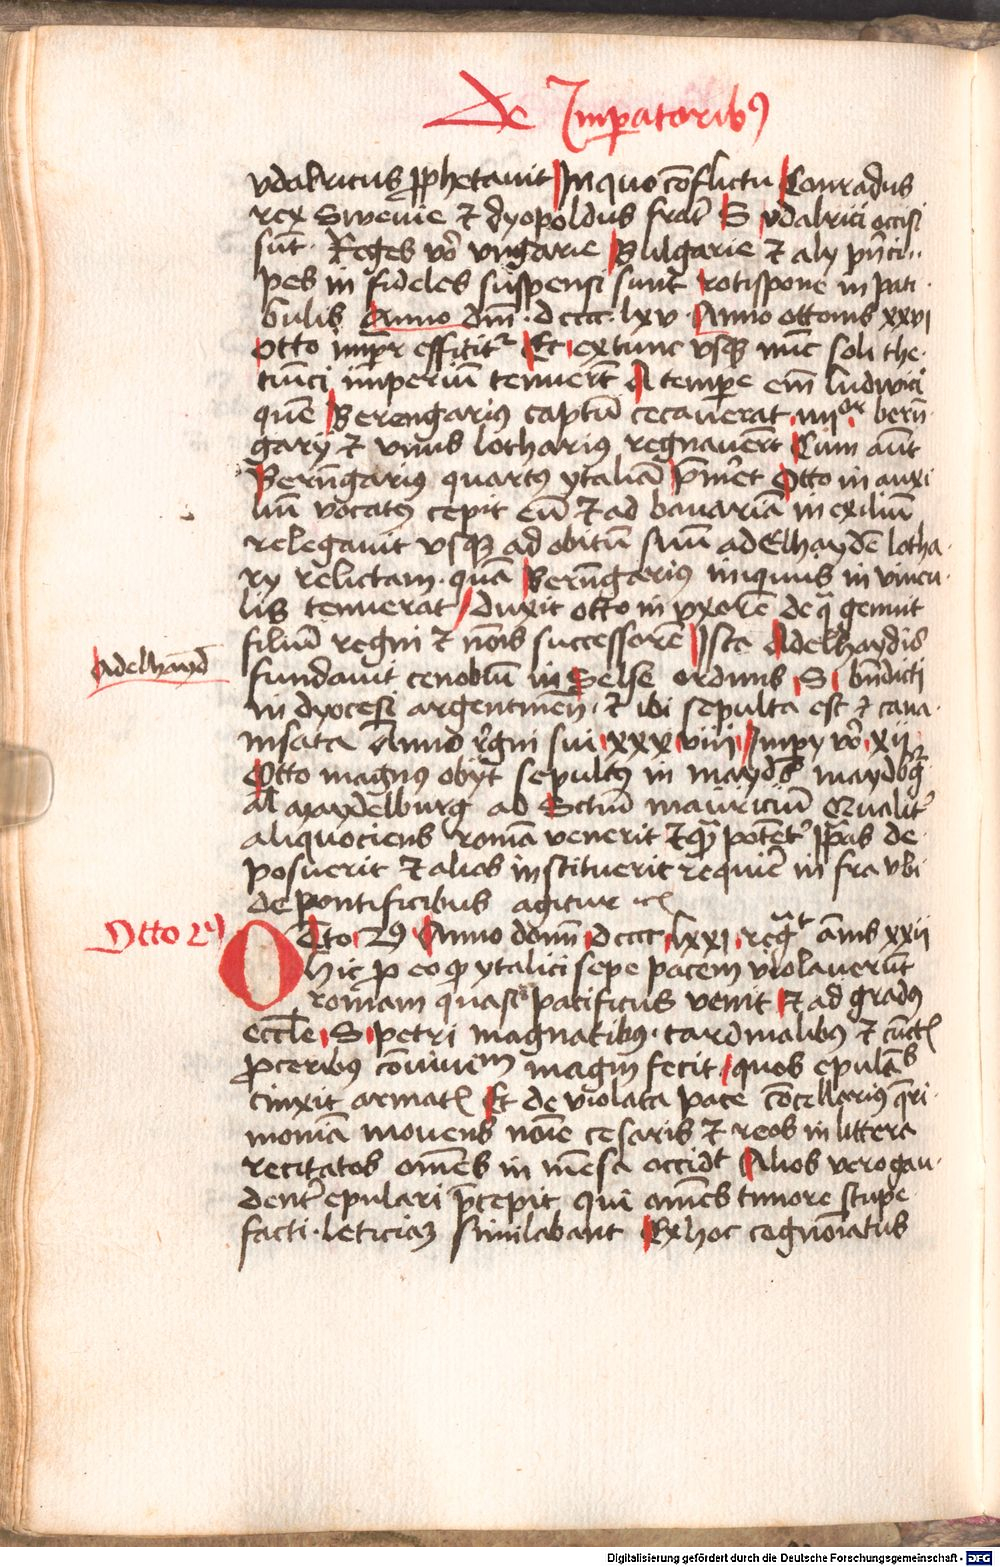 De Imperatorib9
vdalricus prophetavit In quo conflictu Conradus
rex Swevie et dyopoldus frater S vdalrici occisi
sunt. Reges vero vngarie Bulgarie et alij princi
pes in fideles suspensi sunt rotispone in pati
bulis Anno dni. dcccc. lxv. Anno ottonis xxvi
Otto impr efficitur Et ex tunc vsque nunc soli the
tunici imperium tenuerunt A tempore enim ludwici
quem Berengarius captum cecaverat iiiior beren
garij et vnus lotharius regnaverunt Cum autem
Berengarius quartus ytaliam premeret Otto in auxi
lium vocatus cepit eum et ad bavariam in exilium
relegavit vsque ad obitum suum adelhaydem lotha
rij relictam. quam Berengarius iniquus in vincu
lis tenuerat duxit otto in vxorem de qua genuit
filium regni et nominis successorem Ista Adelhaydis
Adelhayd
fundavit cenobium in Selse ordinis S bndicti
in dyocesi argentinen. et ibi sepulta est et cano
nisata Anno regni sui xxxviii Imperij vero xii
Otto magnus obijt sepultus in mayd maydburg
al maydelburg ad Sctum mauricium Qualiter
aliquociens romam venerit et quam potenter papas de
posuerit et alios instituerit require infra vbi
de pontificibus agitur etc
Otto 29
Otto 29 Anno domini dcccc lxxi regnavit annis xxii
Hic pro eo quod ytalici sepe pacem violaverunt
romam quasi pacificus venit Et ad gradus
eccle S petri magnatibus. cardinalibus et cunctis
proceribus convivium magnum fecit. quos epulantes
cinxit armatis Et de violata pace cancellarius queri
moniam movens nomine cesaris et reos in littera
recitatos omnes in mensa occidit Alios vero gau
denter epulari precepit qui omnes timore stupe
facti. leticiam similabant Ex hoc cognominatus
Digitalisierung gefördert durch die Deutsche Forschungsgemeinschaft - DFG